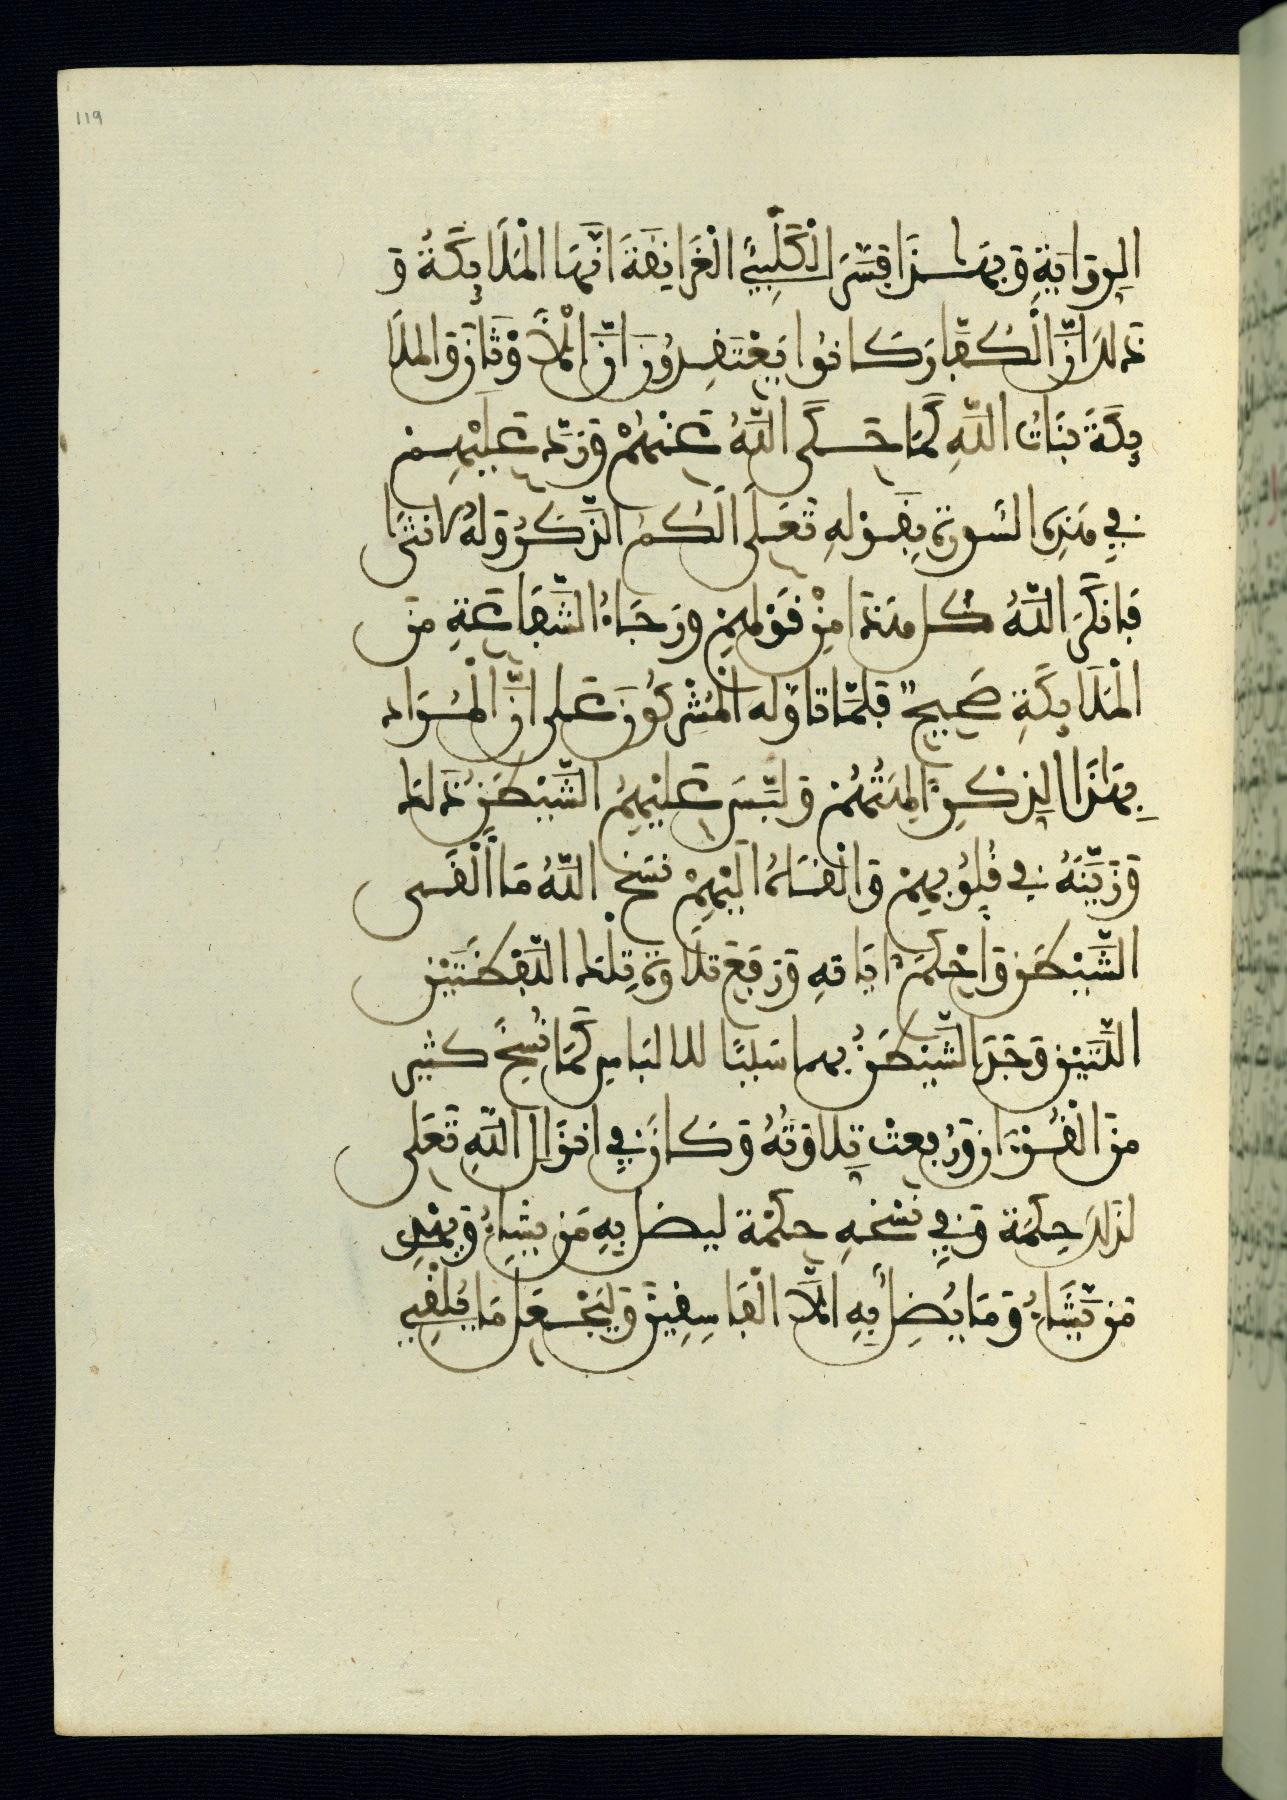 119
الرواية وبهذا فسر الكلبي الغرانقة انها الملايكة و
ذلك ان الكفار كانوا يعتقدون ان الاوثان والملا
يكة بنات الله كما حكى الله عنهم ورد عليهم
في هذه السورة بقوله تعلى الكم الذكر وله الانثى
فانكر الله كل هذا من قولهم ورجاء الشفاعة من
الملايكة صحيح فلما تاوله المشركون على ان المراد
بهذا الذكر الهتهم ولبس عليهم الشيطن ذلك
وزينه في قلوبهم والقاه اليهم نسخ الله ما القى
الشيطن واحكم اياته ورفع تلاوة تلك اللفظتين
اللتين وجد الشيطن بهما سبيلا للالباس كما نسخ كثير
من القران ورفعت تلاوته وكان في انزال الله تعلى
لذلك حكمة وفي نسخه حكمة ليضل به من يشاء ويهدي
من يشاء وما يضل به الا الفاسقين وليجعل ما يلقي